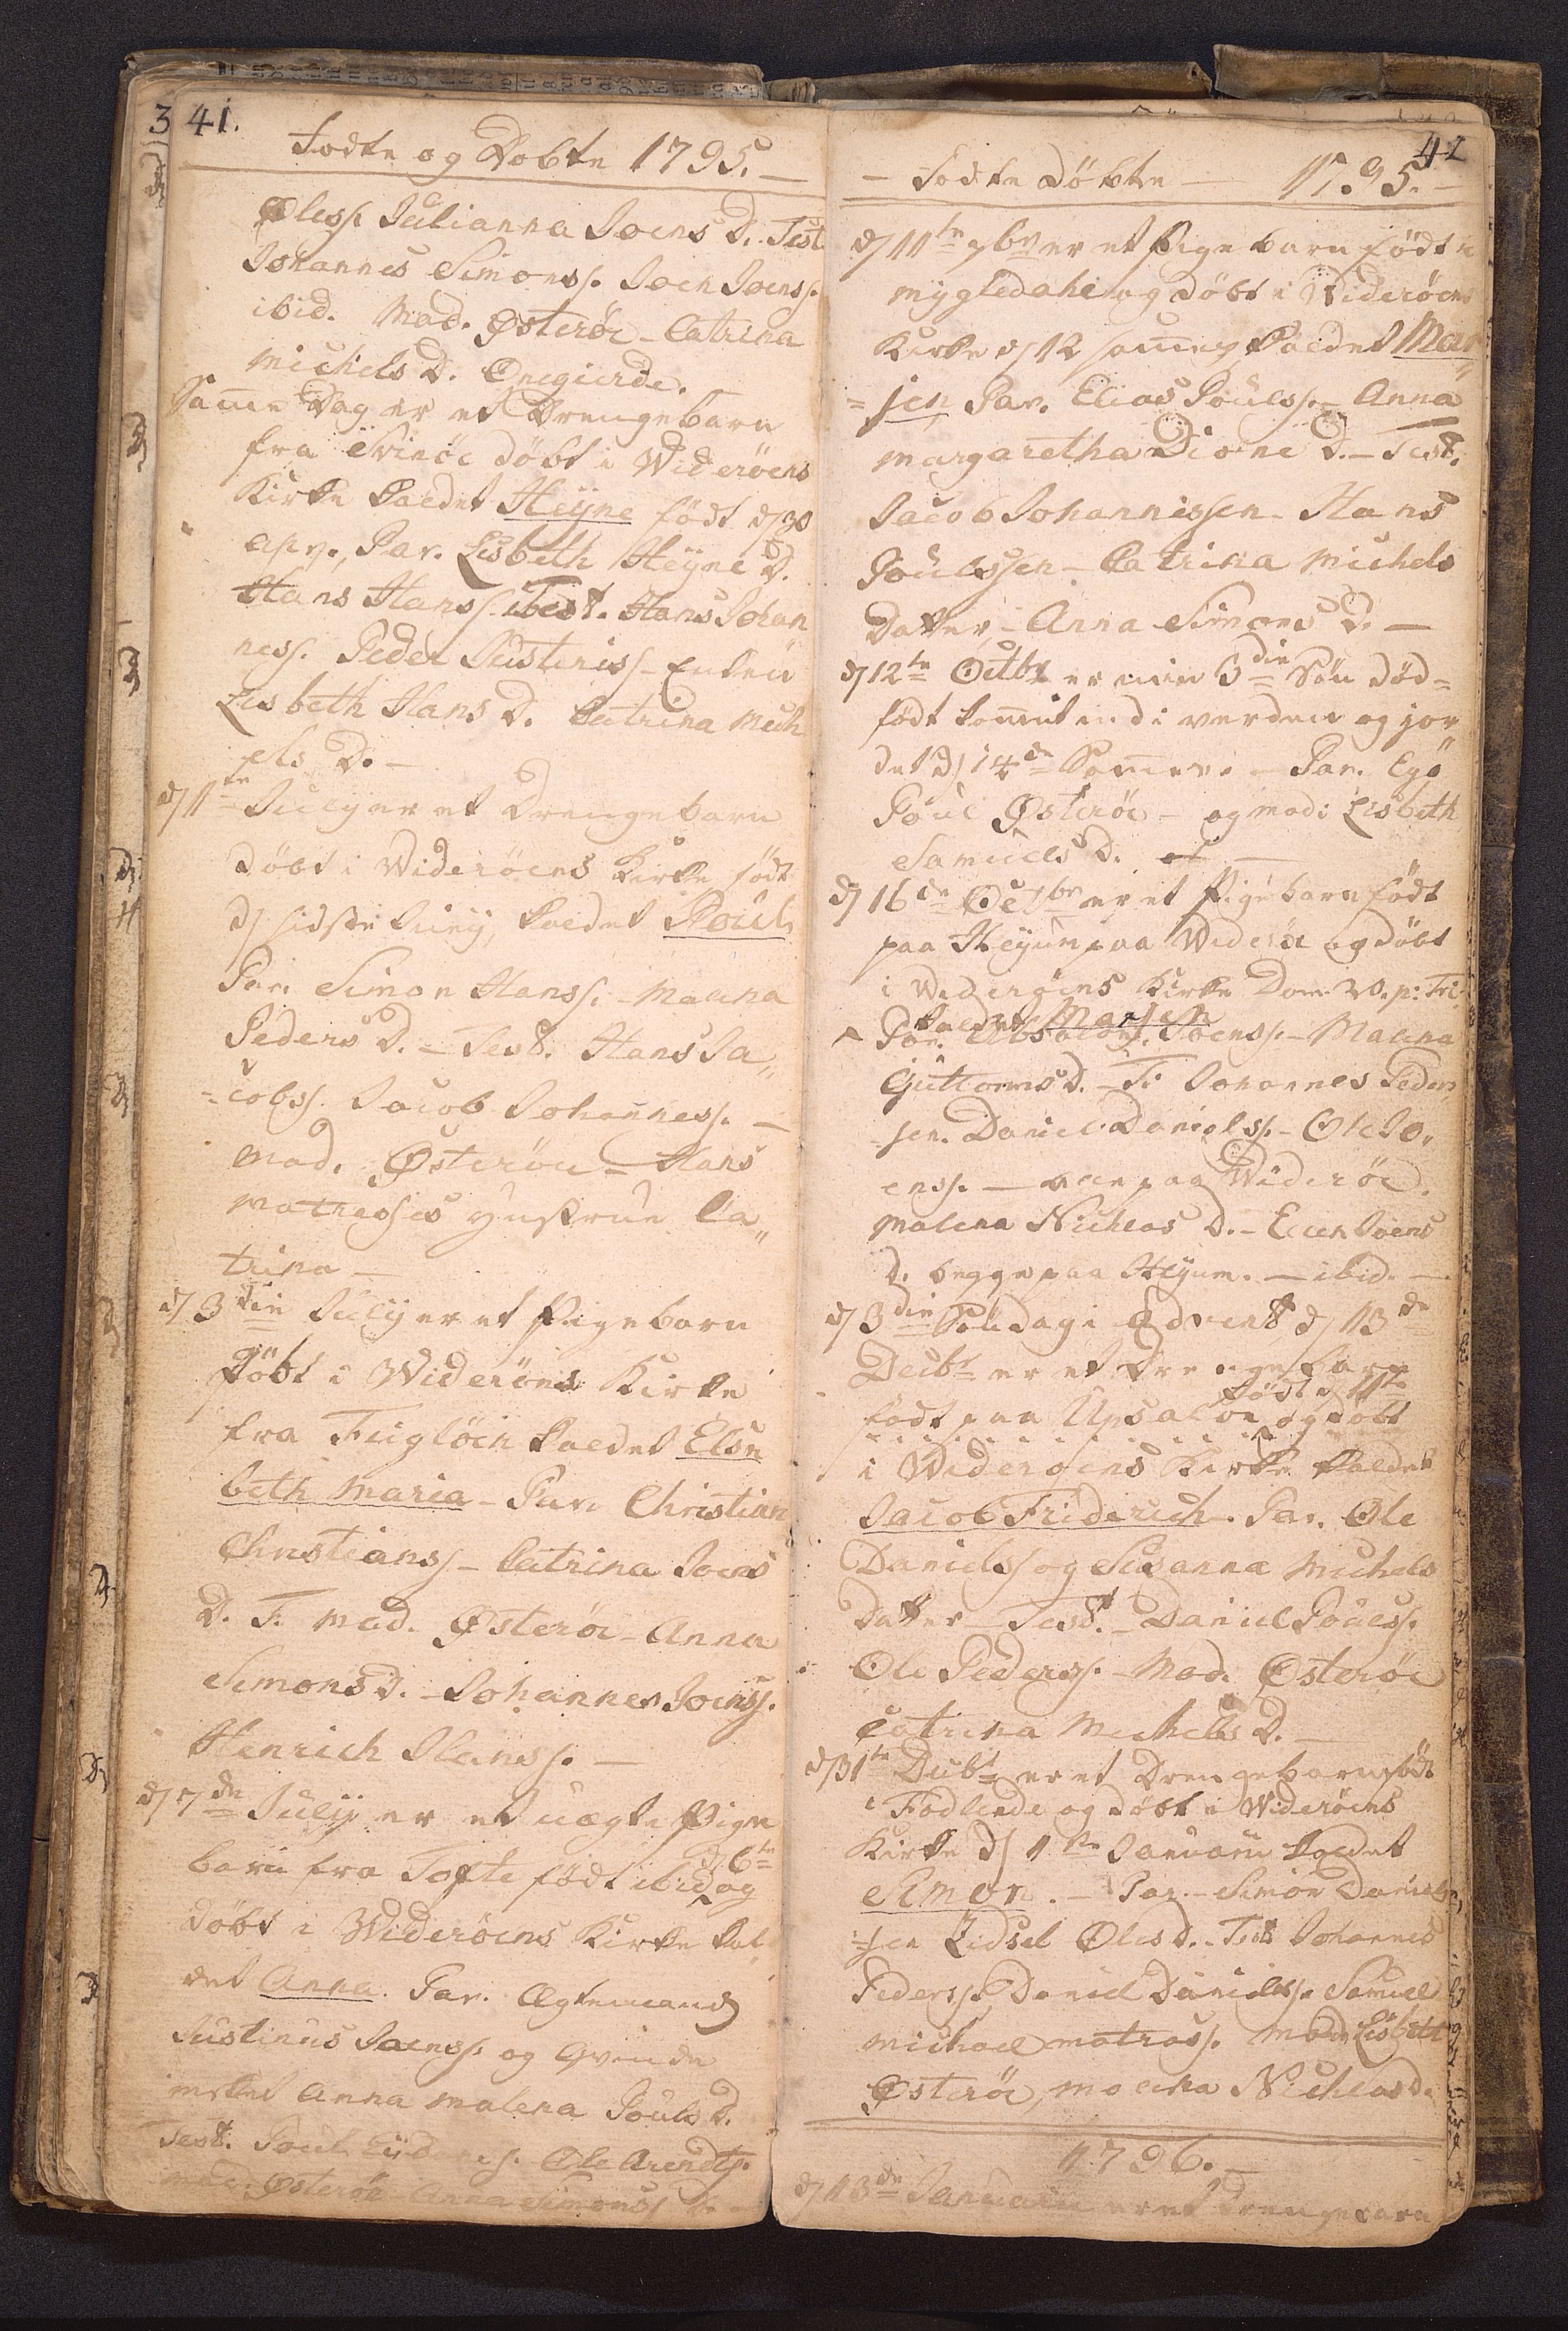 41.
Fodte og Dobte 1795. —
Oless. Julianna Joens D. Test
Johannes Simons. Joen Joens.
ibid. Mad. Østeröe - Catrina
Michels D. Onegierde.
Samme Dag er et Drengebarn
fra Svinöe döbt i Wideröens
Kirke kaldet Heÿne födt d/ 30
apr., Par. Lisbeth Heÿne D.
Hans Hans. Test. Hans Johan
ness. Peder Justiniss - Enken
Lisbeth Hans D. Catrina Mich
els D. —
d/ 11te Julÿ er et Drengebarn
döbt i Wideröens Kirke födt
d/ sidste Junÿ, kaldet Poul
Par. Simon Hans. - Malena
Peders D. - Test. Hans Ja„
cobs. Jacob Johanness. —
Mad. Østeröe - Hans
Matrosses hustrue Ca„
trina —
d/ 3die Julÿ er et Pigebarn
döbt i Wideröens Kirke
fra Fuglöen kaldet Else
beth Maria - Par. Christian
Christians - Catrina Joens
D. T. Mad. Østeröe - Anna
Simons D. - Johannes Joens.
Henrich Hans. —
d/ 7de Julÿ er et uægte Pige
d/ 6te
barn fra Tofte födt ibid og
döbt i Wideröens Kirke kal
det Anna. Par. Ægtemand
Justinus Joens. og Qvinde
Anna Malena Pouls D.
Test. Poul Ole Arendts.
Mad. Østeröe Anna Simons D.
42
— Fodte Döbte — 1795. —
d/ 11te 7br er et Pigebarn födt i
Mygledahl og döbt i Wideröens
Kirke d/ 12 kaldet Mar
= jen Par. Elias Pouls. - Anna
Margaretha Dione D. - Test.
Jacob Johannissen - Hans
Poulssen - Catrina Michels
Datter - Anna Simons D. —
d/ 12te Octbr er min 3die Sön död=
födt kommet ind i verden og jor
det d/ 14de Par. Ego
Poul Østeröe - og mad: Lisbeth
Samuels D. —
d/ 16de Octbr er et Pigebarn födt
paa Heÿum paa Wideröe og döbt
i Wideröens Kirke Dom. 20. p: Tri
kaldet Marjen
Par. Absalon Joens. - Malena
Guttorms D. - T. Johannes Peder
sen. Daniel Daniels. - Ole Jo,
ens. — alle paa Wideröe.
Malena Nichlas D. - Ellen Joens
D. begge paa Heÿum. — ibid. —
d/ 3die Söndag i Advent, d/ 13de
Decbr er et Drengebarn
födt d/ 11te
födt paa Upsalöe og döbt
i Wideröens Kirke kaldet
Jacob Friderich - Par. Ole
Daniels og Susanna Michels
Datter - Test. - Daniel Pouls.
Ole Peders. - Mad. Østeröe
Catrina Michels D.
d/ 31te Decbr er et Drengebarn födt
i Fodlende og döbt i Wideröens
Kirke d/ 1te Januarii kaldet
Simon. - Par. - Simon Daniel
sen Zidsel Oles d. - Test Johannes
Peders. Daniel Daniels. Samuel
Michael matross. Mad. Lisbeth
Østeröe, Malena Nichlas d.
1796. —
d/ 13de Januarii er et Drengebarn